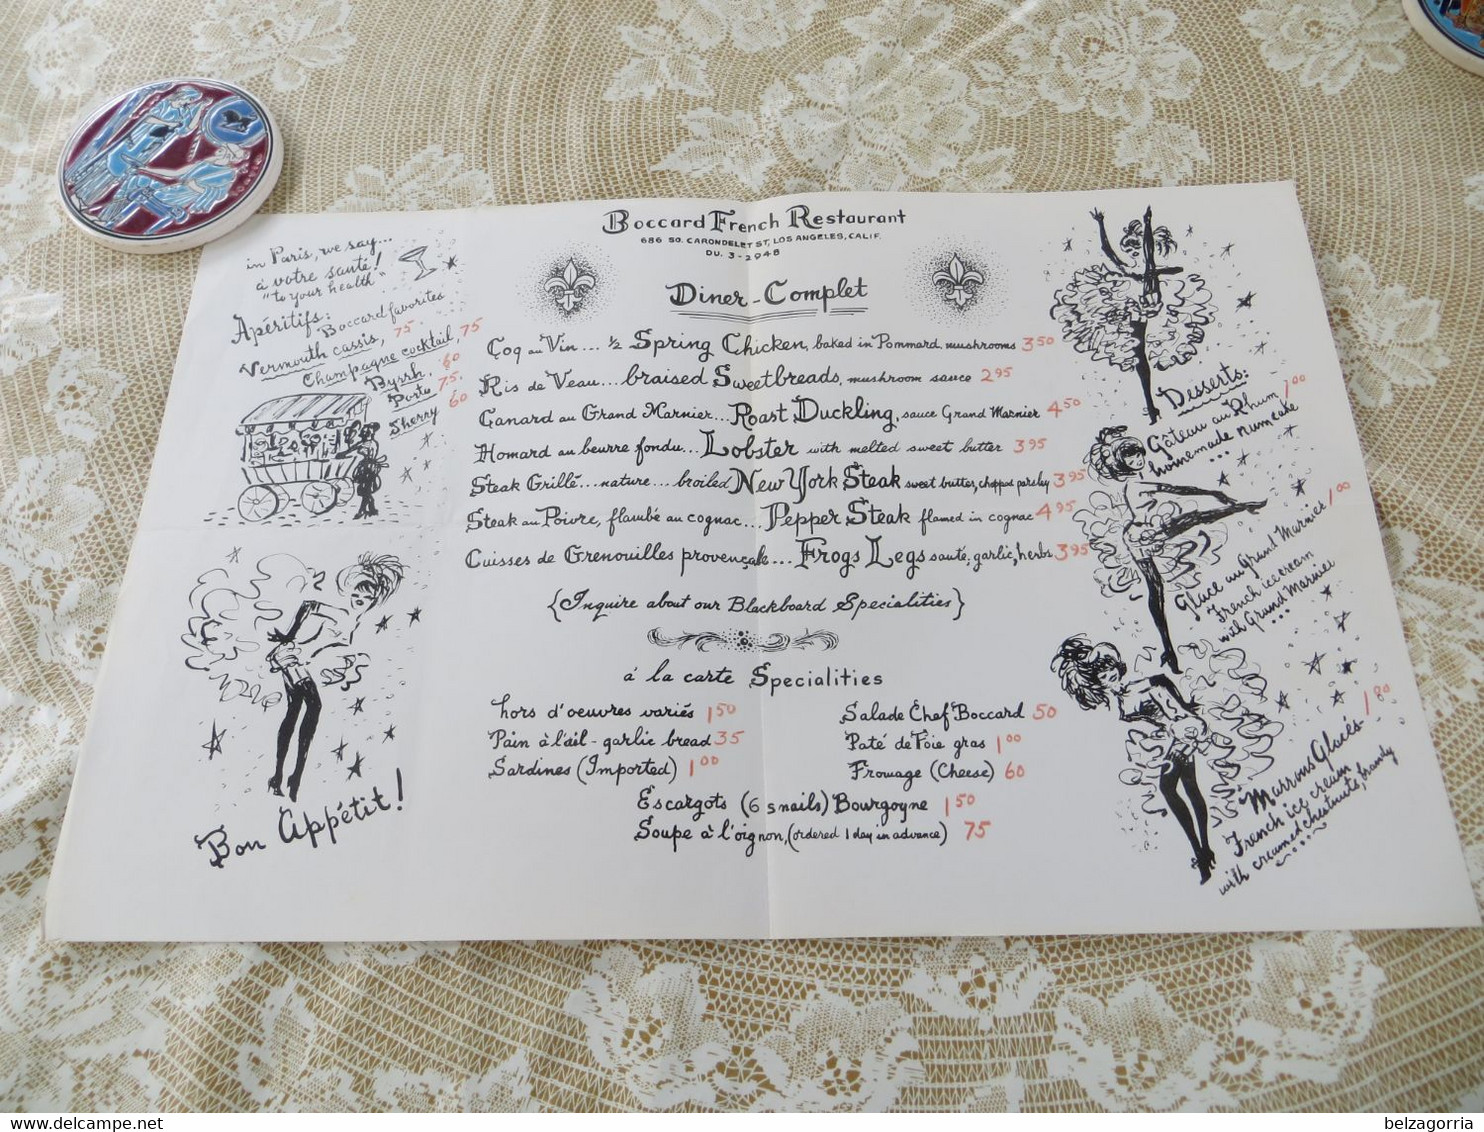 Boccard French Restaurant
686 SO. CARONDELET ST, LOS ANGELES, CALIF.
DU. 3-2948
in Paris, we say...
à votre santé!
"to your health"
Apéritifs:
Boccard favorites
Vermouth cassis, 75
Champagne cocktail, 75
Byrrh, 60
Porto 75.
Sherry 60
Bon Appétit!
Diner-Complet
Coq au Vin... ½ Spring Chicken, baked in Pommard, mushrooms 3 50
Ris de Veau... braised Sweetbreads, mushroom sauce 2 95
Canard au Grand Marnier... Roast Duckling, sauce Grand Marnier 4 50
Homard au beurre fondu... Lobster with melted sweet butter 3 95
Steak Grillé... nature... broiled New York Steak sweet butter, chopped parsley 3 95
Steak au Poivre, flambé au cognac... Pepper Steak flamed in cognac 4 95
Cuisses de Grenouilles provençale... Frogs Legs sauté, garlic, herbs 3 95
{Inquire about our Blackboard Specialities}
á la carte Specialities
hors d'oeuvres variés 1 50
Pain à l'ail - garlic bread 35
Sardines (Imported) 1 00
Salade Chef Boccard 50
Paté de Foie gras 1 00
Fromage (Cheese) 60
Escargots (6 snails) Bourgogne 1 50
Soupe à l'oignon, (ordered 1 day in advance) 75
Desserts:
Gâteau au Rhum 1 00
homemade rum cake
...
Glace au Grand Marnier 1 00
French ice cream
with Grand Marnier
...
Marrons Glacés 1 80
French ice cream
with creamed chestnuts, brandy
belzagorria